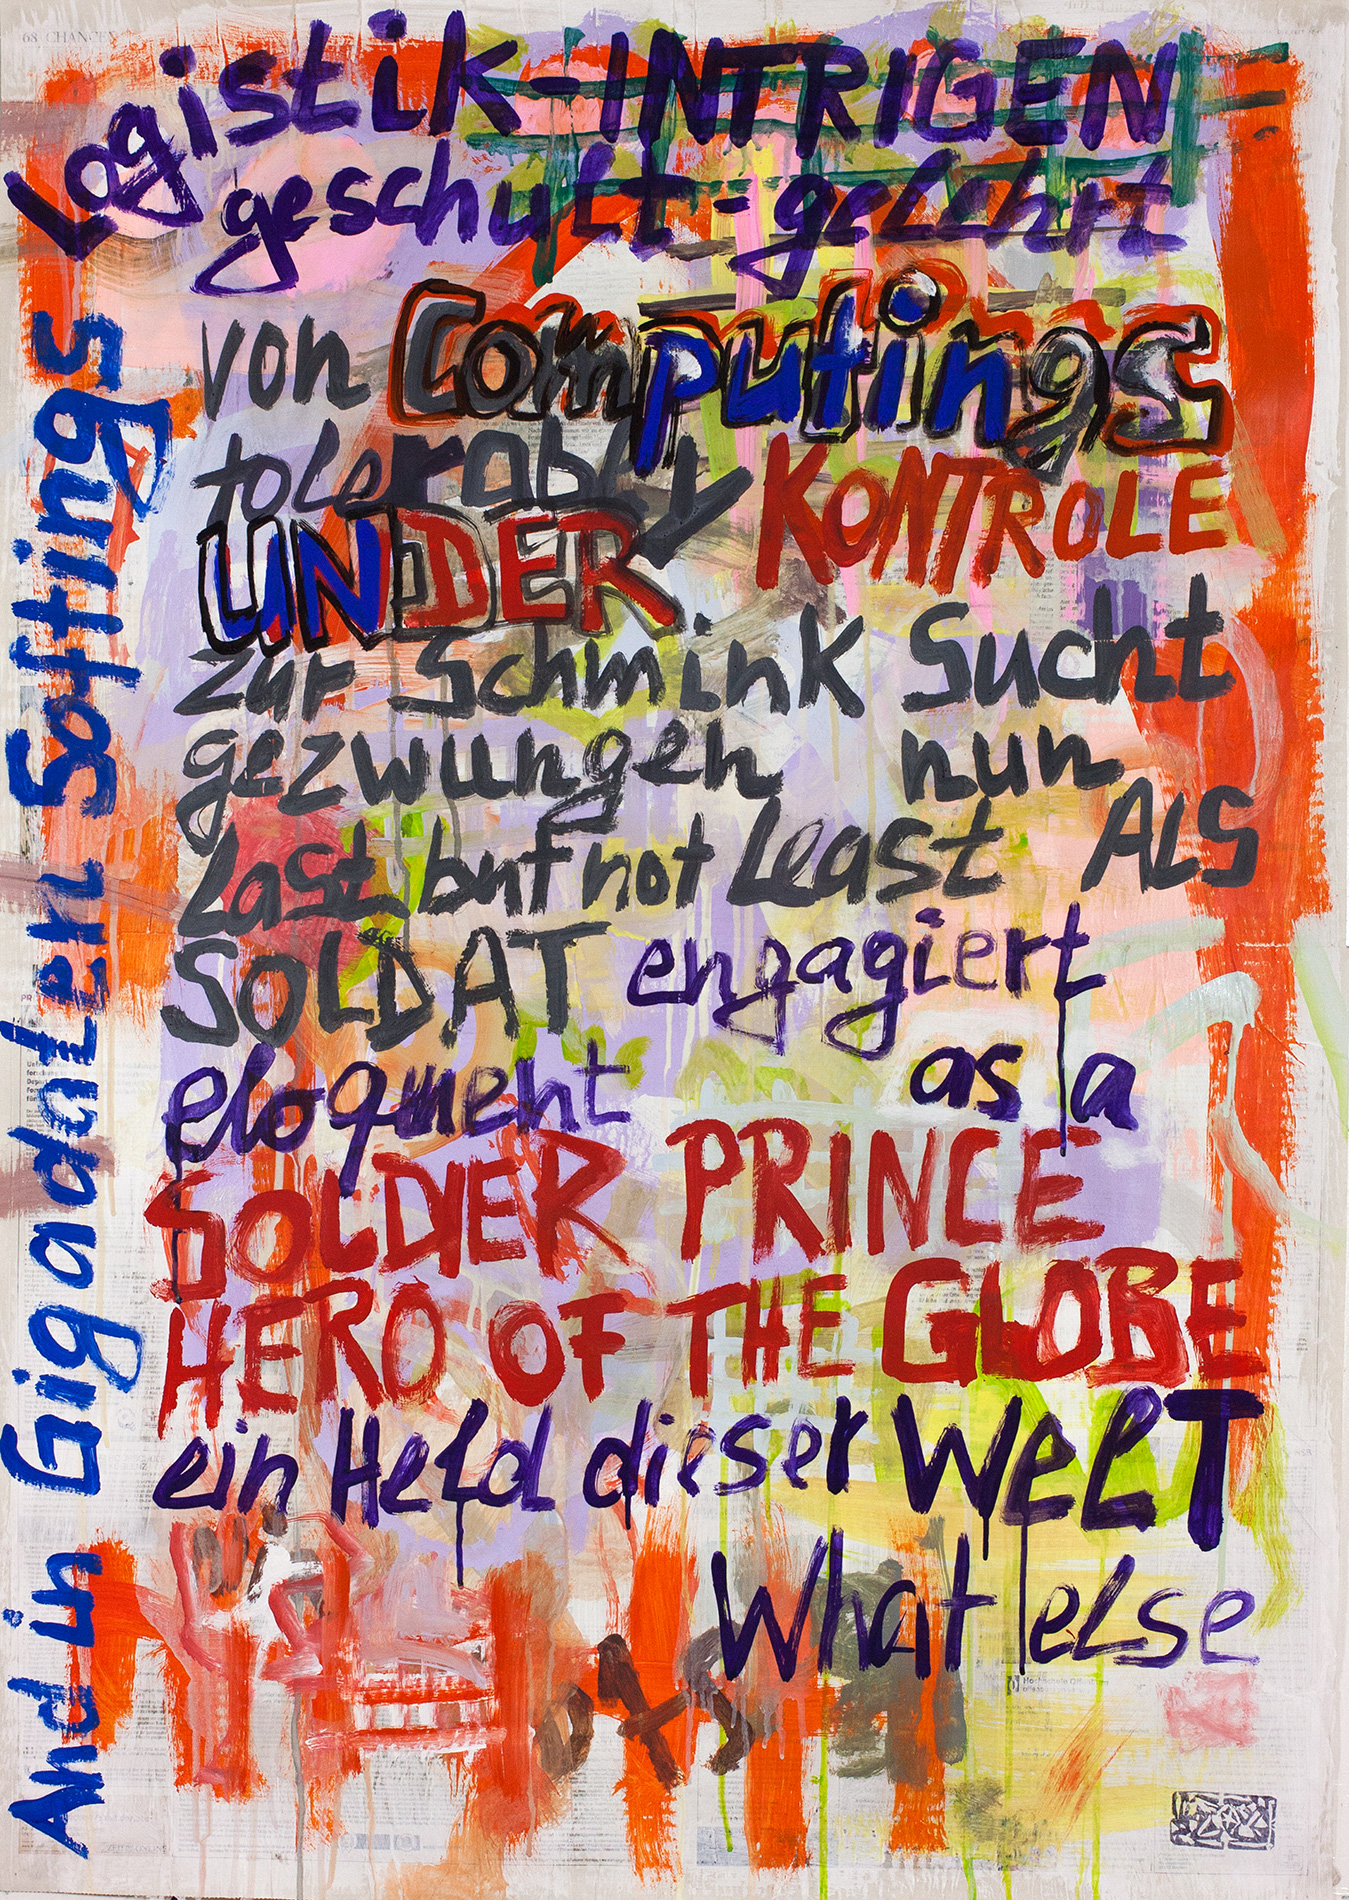 Logistik-INTRIGEN
geschult-gelehrt
von Computings
tolerably KONTROLE
UNDER
zur Schmink Sucht
gezwungen nun
last but not least ALS
SOLDAT engagiert
eloquent as a
SOLDIER PRINCE
HERO OF THE GLOBE
ein Held dieser WelT
What else
And in Gigadaten Softings
68 CHANCEN